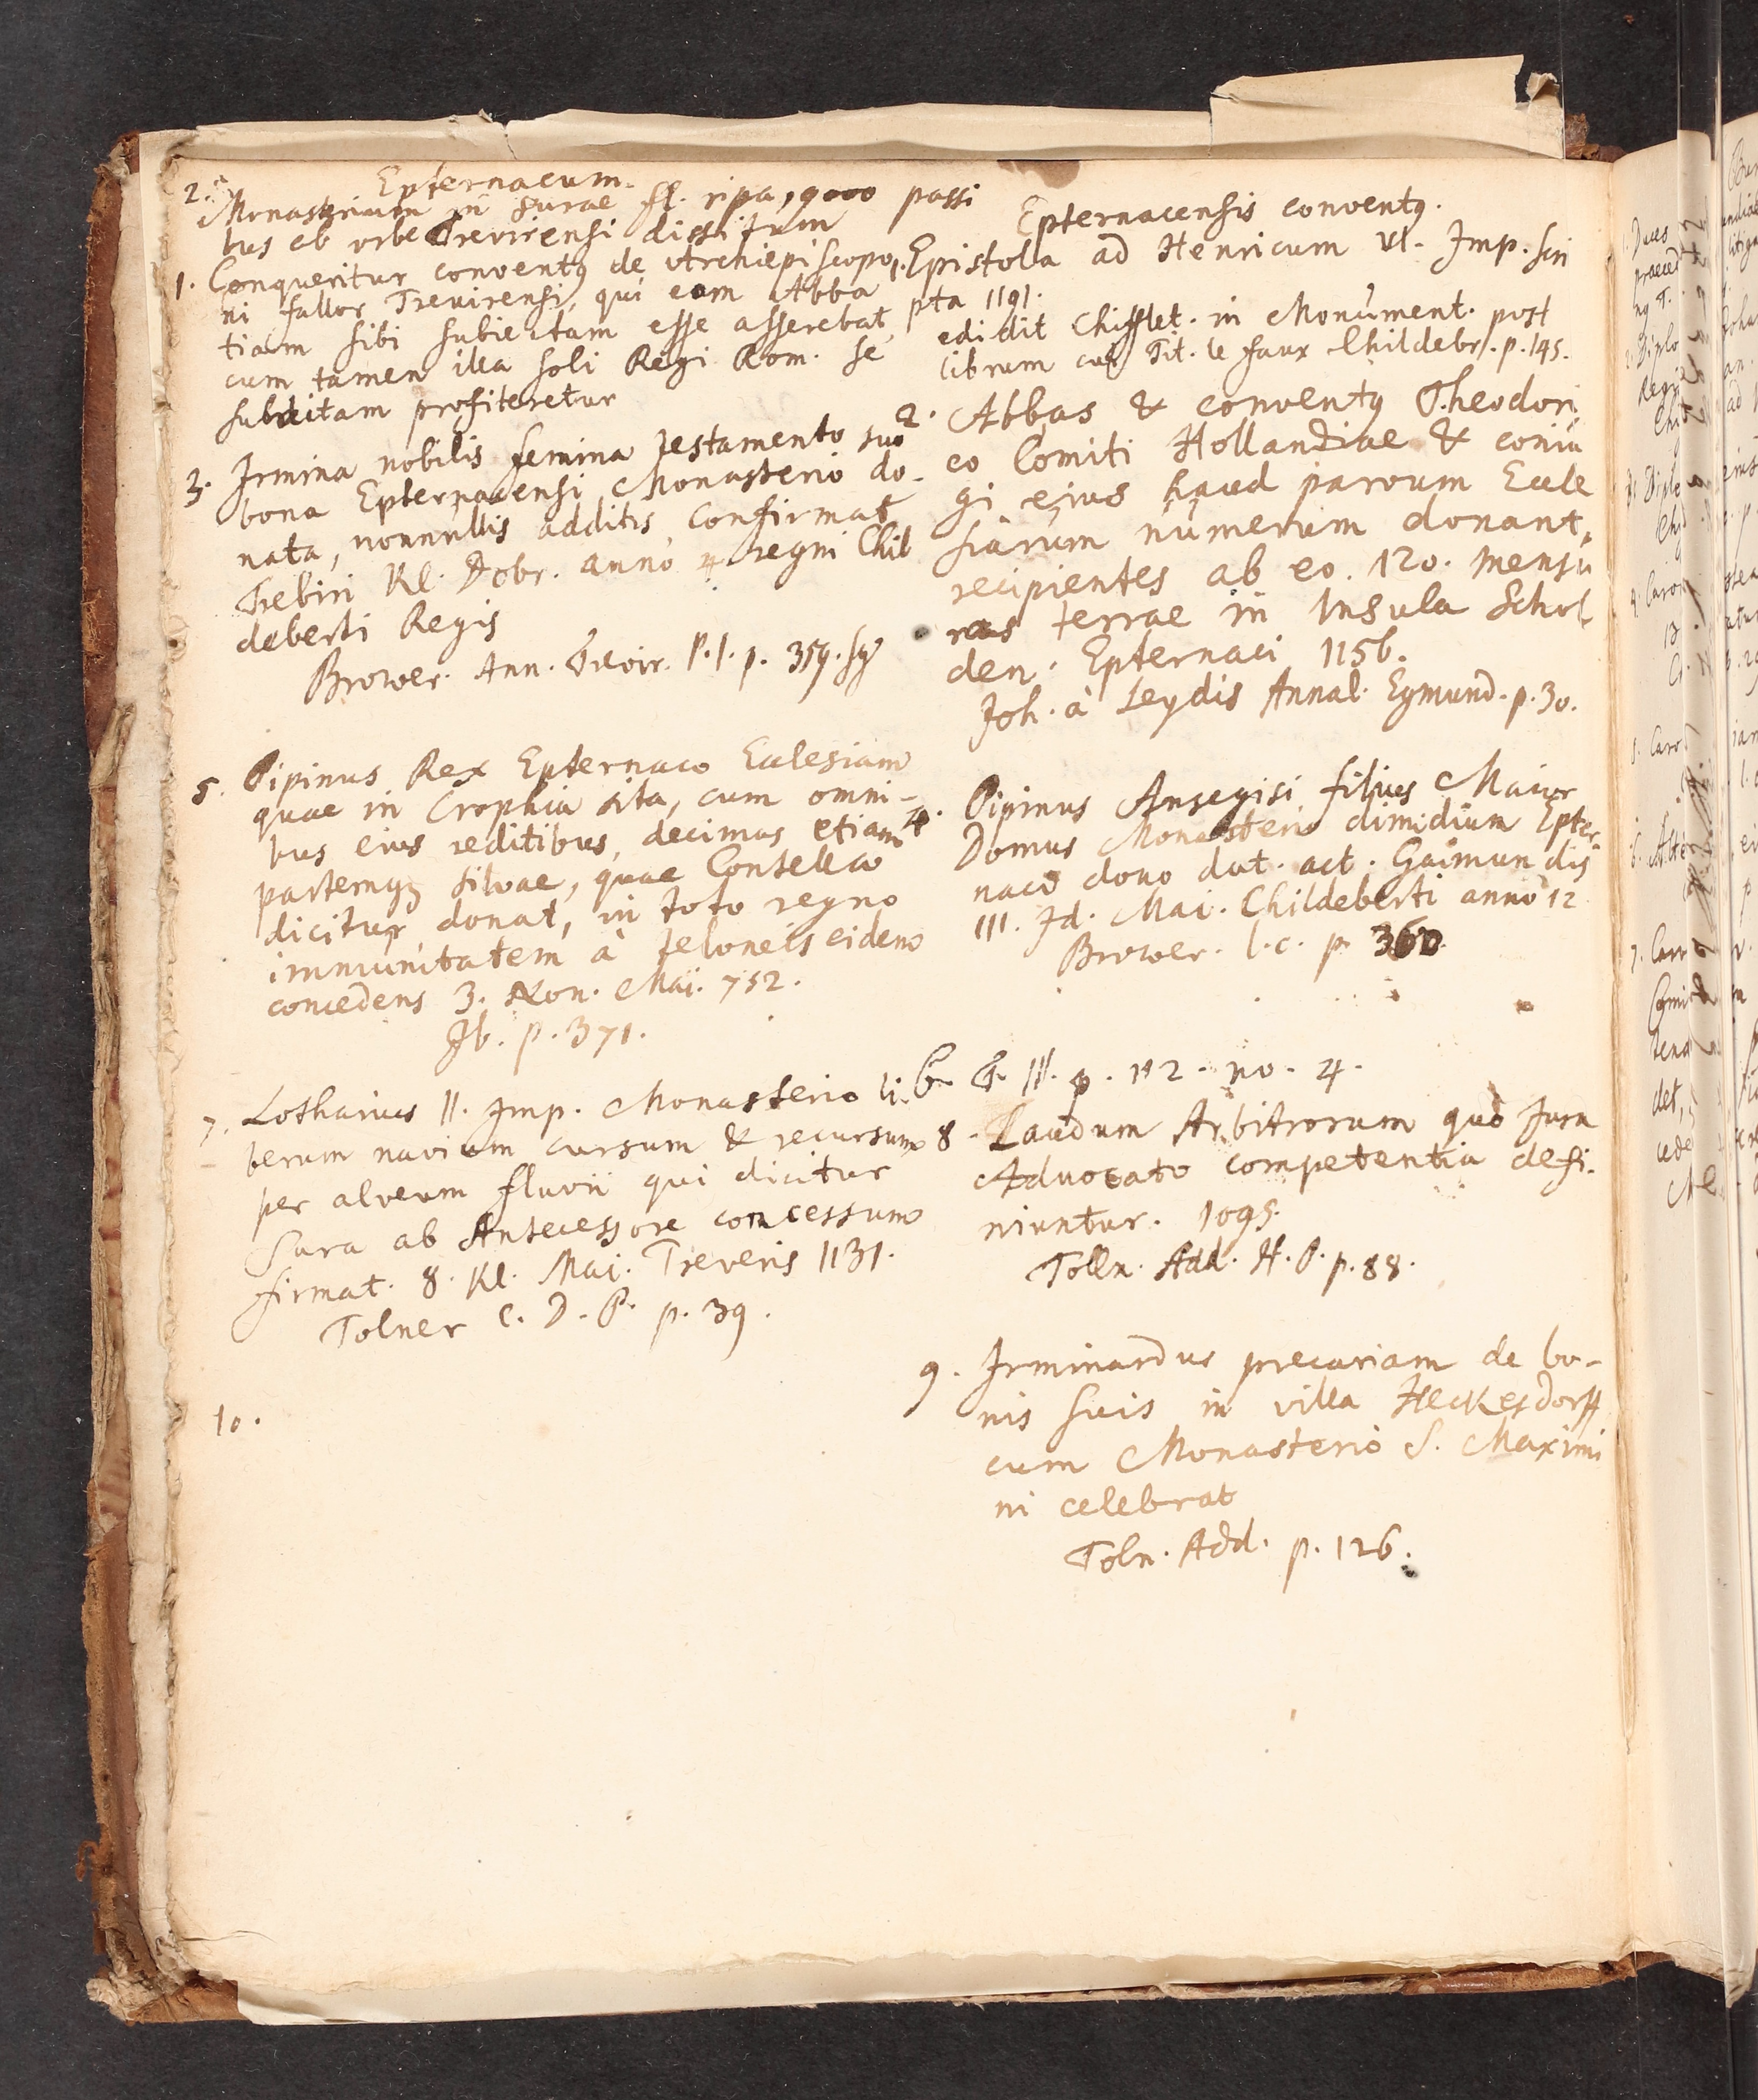 Epternacum.
2. Monasterium in Surae fl. ripa, 9000 passi
bus ab urbe Trevirensi dissitum
1. Conqueritur conventq de Archiepiscopo,
ni fallor Trevirensi, qui eam Abba
tiam sibi subiectam esse asserebat,
cum tamen illa soli Regi Rom. se
subditam profiteretur
3. Irmina nobilis femina testamento suo
bona Epternacensi Monasterio do-
nata, nonnullis additis, confirmat
Trebiri Kl. Dobr. anno 4 regni Chil
deberti Regis
Brower. Ann. Trevir. P. I. p. 359. sq
5. Pipinus Rex Epternaco Ecclesiam
quae in Crophia sita, cum omni-
bus eius reditibus, decimas etiam
partemq; silvae, quae Contello
dicitur, donat, in toto regno
immunitatem à teloneis eidem
concedens 3. Non. Mai. 752.
Ib. p. 371.
7. Lotharius II. Imp. Monasterio li-
berum navium cursum & recursum
per alveum fluvii qui dicitur
Sura ab Antecessore concessum
firmat. 8. Kl. Mai. Treveris 1131.
Tolner C. D. P. p. 39.
10.
Epternacensis conventq.
1. Epistola ad Henricum VI. Imp. scri
pta 1191.
edidit Chifflet. in Monument. post
librum cui Tit. le faux Childebr. p. 145.
2. Abbas & conventq Theodori
co Comiti Hollandiae & coniu
gi eius haud parvum Eccle
siarum numerum donant,
recipientes ab eo. 120. mensu
ras terrae in Insula Schol
den. Epternaci 1156.
Joh. à Leydis Annal. Egmund. p. 30.
4. Pipinus Ansegisi filius Maior
Domus Monasterio dimidium Epter-
naco dono dat. act. Gaimundis
III. Id. Mai. Childeberti anno 12
Brower. l. c. p. 360.
6. T. III. p. 112. no. 4.
8. Laudum Arbitrorum quo Jura
Advocato competentia defi-
niuntur. 1095.
Tolln. Add. H. P. p. 88.
9. Irminardus precariam de bo-
nis suis in villa Heckesdorff
cum Monasterio S. Maximi
ni celebrat
Toln. Add. p. 126.